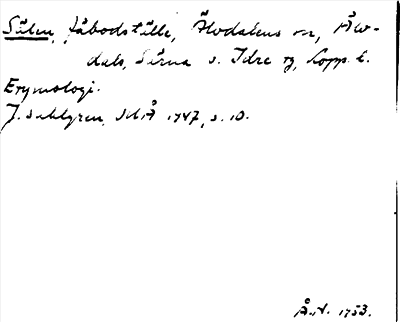 Sälen, fäbodställe, Älvdalens sn, Älv-
dals, Särna o. Idre tg, Kopp. l.
Etymologi.
J. Sahlgren, SNÅ 1947, s. 10.
Å.N. 1953.